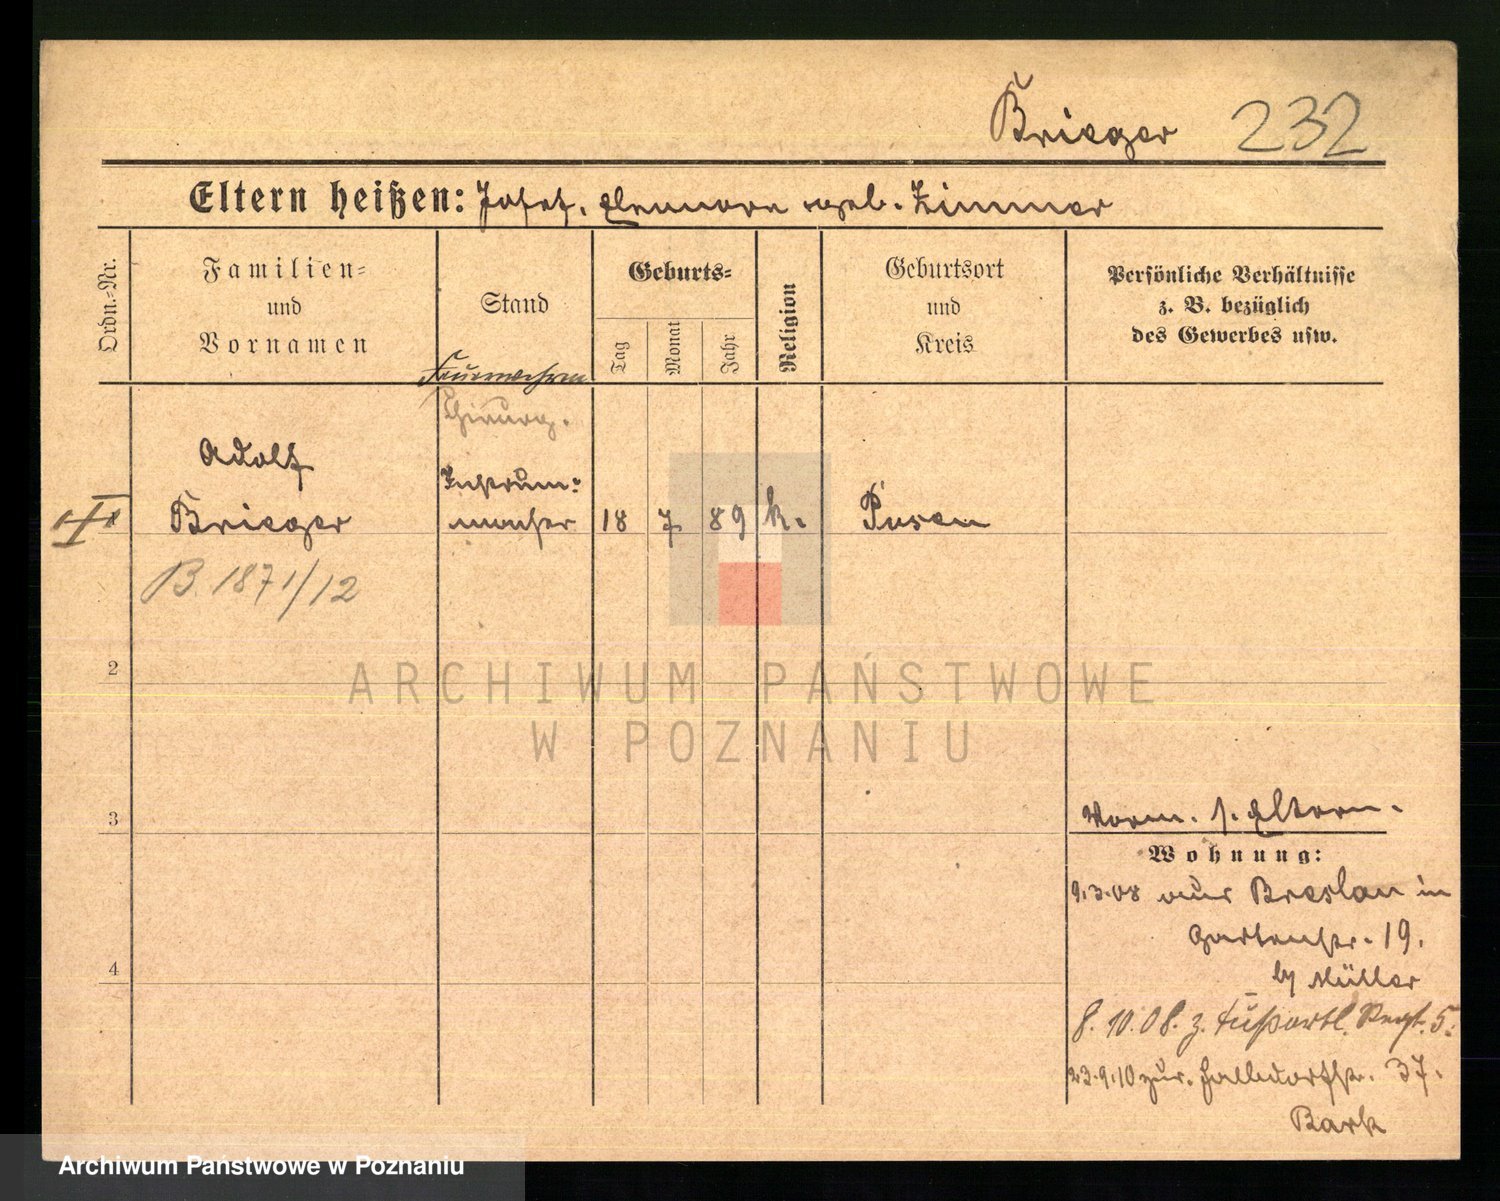 Brieger 232
Eltern heißen: Josef, Eleonore geb. Zimmer
Ordn.-Nr.
Familien-
und
Vornamen
Stand
Geburts-
Tag
Monat
Jahr
Religion
Geburtsort
und
Kreis
Persönliche Verhältnisse
z. B. bezüglich
des Gewerbes usw.
Feuerwehrm
Chirurg.
Adolf
Instrum:
I
Brieger
macher
18 7. 89 k. Posen
B. 1871/12
2
ARCHIWUM PAŃSTWOWE
W POZNANIU
3
Vorm. s. Eltern.
Wohnung:
9.3.08 aus Breslau in
Gartenstr. 19.
by Müller
4
8.10.08. z. Fußartl. Regt. 5.
23.9.10 zur. 37.
Bark
Archiwum Państwowe w Poznaniu